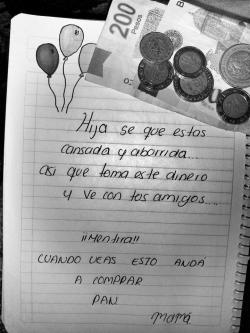 200
Pesos
Hija se que estas
cansada y aburrida...
asi que toma este dinero
y ve con tus amigos....
¡¡Mentira!!
CUANDO VEAS ESTO ANDÁ
A COMPRAR
PAN.
Mamá